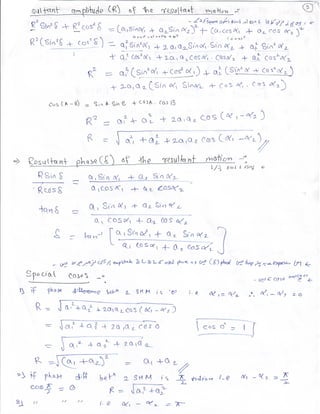 sultant amplitude (R) of the resultant motion :-
R² Sin²δ + R² cos²δ = (a₁Sinα₁ + a₂Sinα₂)² + (a₁cosα₁ + a₂ cosα₂)²
R² (Sin²δ + cos²δ) = a₁² Sin²α₁ + 2a₁a₂ Sinα₁ Sinα₂ + a₂² Sin²α₂
+ a₁² cos²α₁ + 2a₁a₂ cosα₁ cosα₂ + a₂² cos²α₂
R² = a₁² (Sin²α₁ + cos²α₁) + a₂² (Sin²α₂ + cos²α₂)
+ 2a₁a₂ (Sinα₁ Sinα₂ + cosα₁ cosα₂)
cos (A-B) = SinA SinB + cosA cosB
R² = a₁² + a₂² + 2a₁a₂ cos (α₁ - α₂)
R = √a₁² + a₂² + 2a₁a₂ cos (α₁ - α₂)
⇒ Resultant phase (δ) of the resultant motion :-
RSinδ / Rcosδ = a₁Sinα₁ + a₂ Sinα₂ / a₁cosα₁ + a₂ cosα₂
tanδ = a₁ Sinα₁ + a₂ Sinα₂ / a₁ cosα₁ + a₂ cosα₂
δ = tan⁻¹ [a₁ Sinα₁ + a₂ Sinα₂ / a₁ cosα₁ + a₂ cosα₂]
Special cases :-
1) if phase difference betⁿ 2 SHM is '0' i.e α₁ = α₂ ∴ α₁ - α₂ = 0
R = √a₁² + a₂² + 2a₁a₂ cos (α₁ - α₂)
= √a₁² + a₂² + 2a₁a₂ cos 0 [cos 0° = 1]
= √a₁² + a₂² + 2a₁a₂
R = √(a₁ + a₂)² = a₁ + a₂
2) if phase diff betⁿ 2 SHM is π/2 radian i.e α₁ - α₂ = π/2
cos π/2 = 0 R = √a₁² + a₂²
3) " " " i.e α₁ - α₂ = π